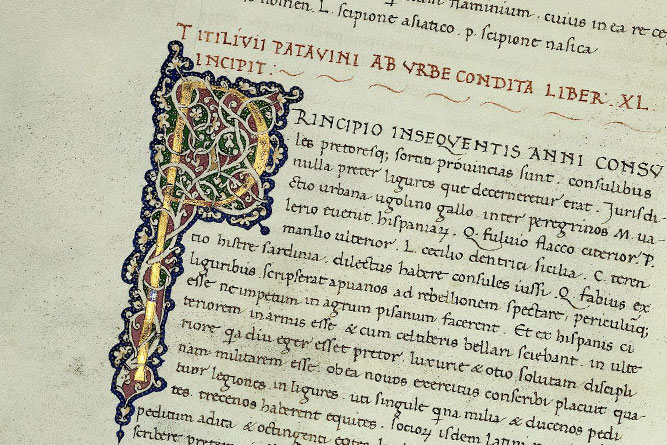 nomen. L. scipione asiatico. p. scipione nasica
flaminium. cuius in ea re ce
TITI LIVII PATAVINI AB VRBE CONDITA LIBER. XL.
INCIPIT:
PRINCIPIO INSEQVENTIS ANNI CONSV
les pretoresq; sortiti prouincias sunt. consulibus
nulla preter ligures que decerneretur erat. Jurisdi-
ctio urbana ugolino gallo. inter peregrinos M. ua-
lerio euenit. hispaniaꝝ. Q. fuluio flacco citerior. P.
manlio ulterior. L. cecilio dentrici sicilia. C. teren
tio histre sardinia. dilectus habere consules iussi. Q. fabius ex
liguribus scripserat apuanos ad rebellionem spectare, periculuq;
esse ne impetum in agrum pisanum facerent. Et ex hispanis ci
teriorem in armis esse & cum celtiberis bellari sciebant. in ulte-
riore qa diu eger esset pretor. luxurie & otio solutam discipli
nam militarem esse. ob ea nouos exercitus conscribi placuit qua-
tuor legiones in ligures. uti singule qna milia & ducenos pedi
tes. trecenos haberent equites. socioꝝ isdem latini
peditum addita & octingenti equites
scribere